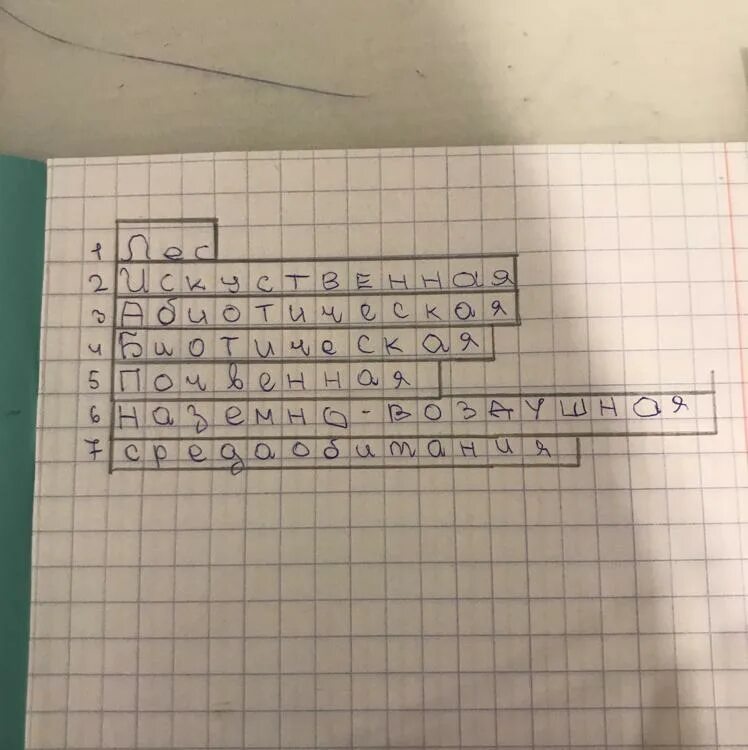 1 Лес
2 Искуственная
3 Абиотическая
4 Биотическая
5 Почвенная
6 наземно-воздушная
7 средаобитания